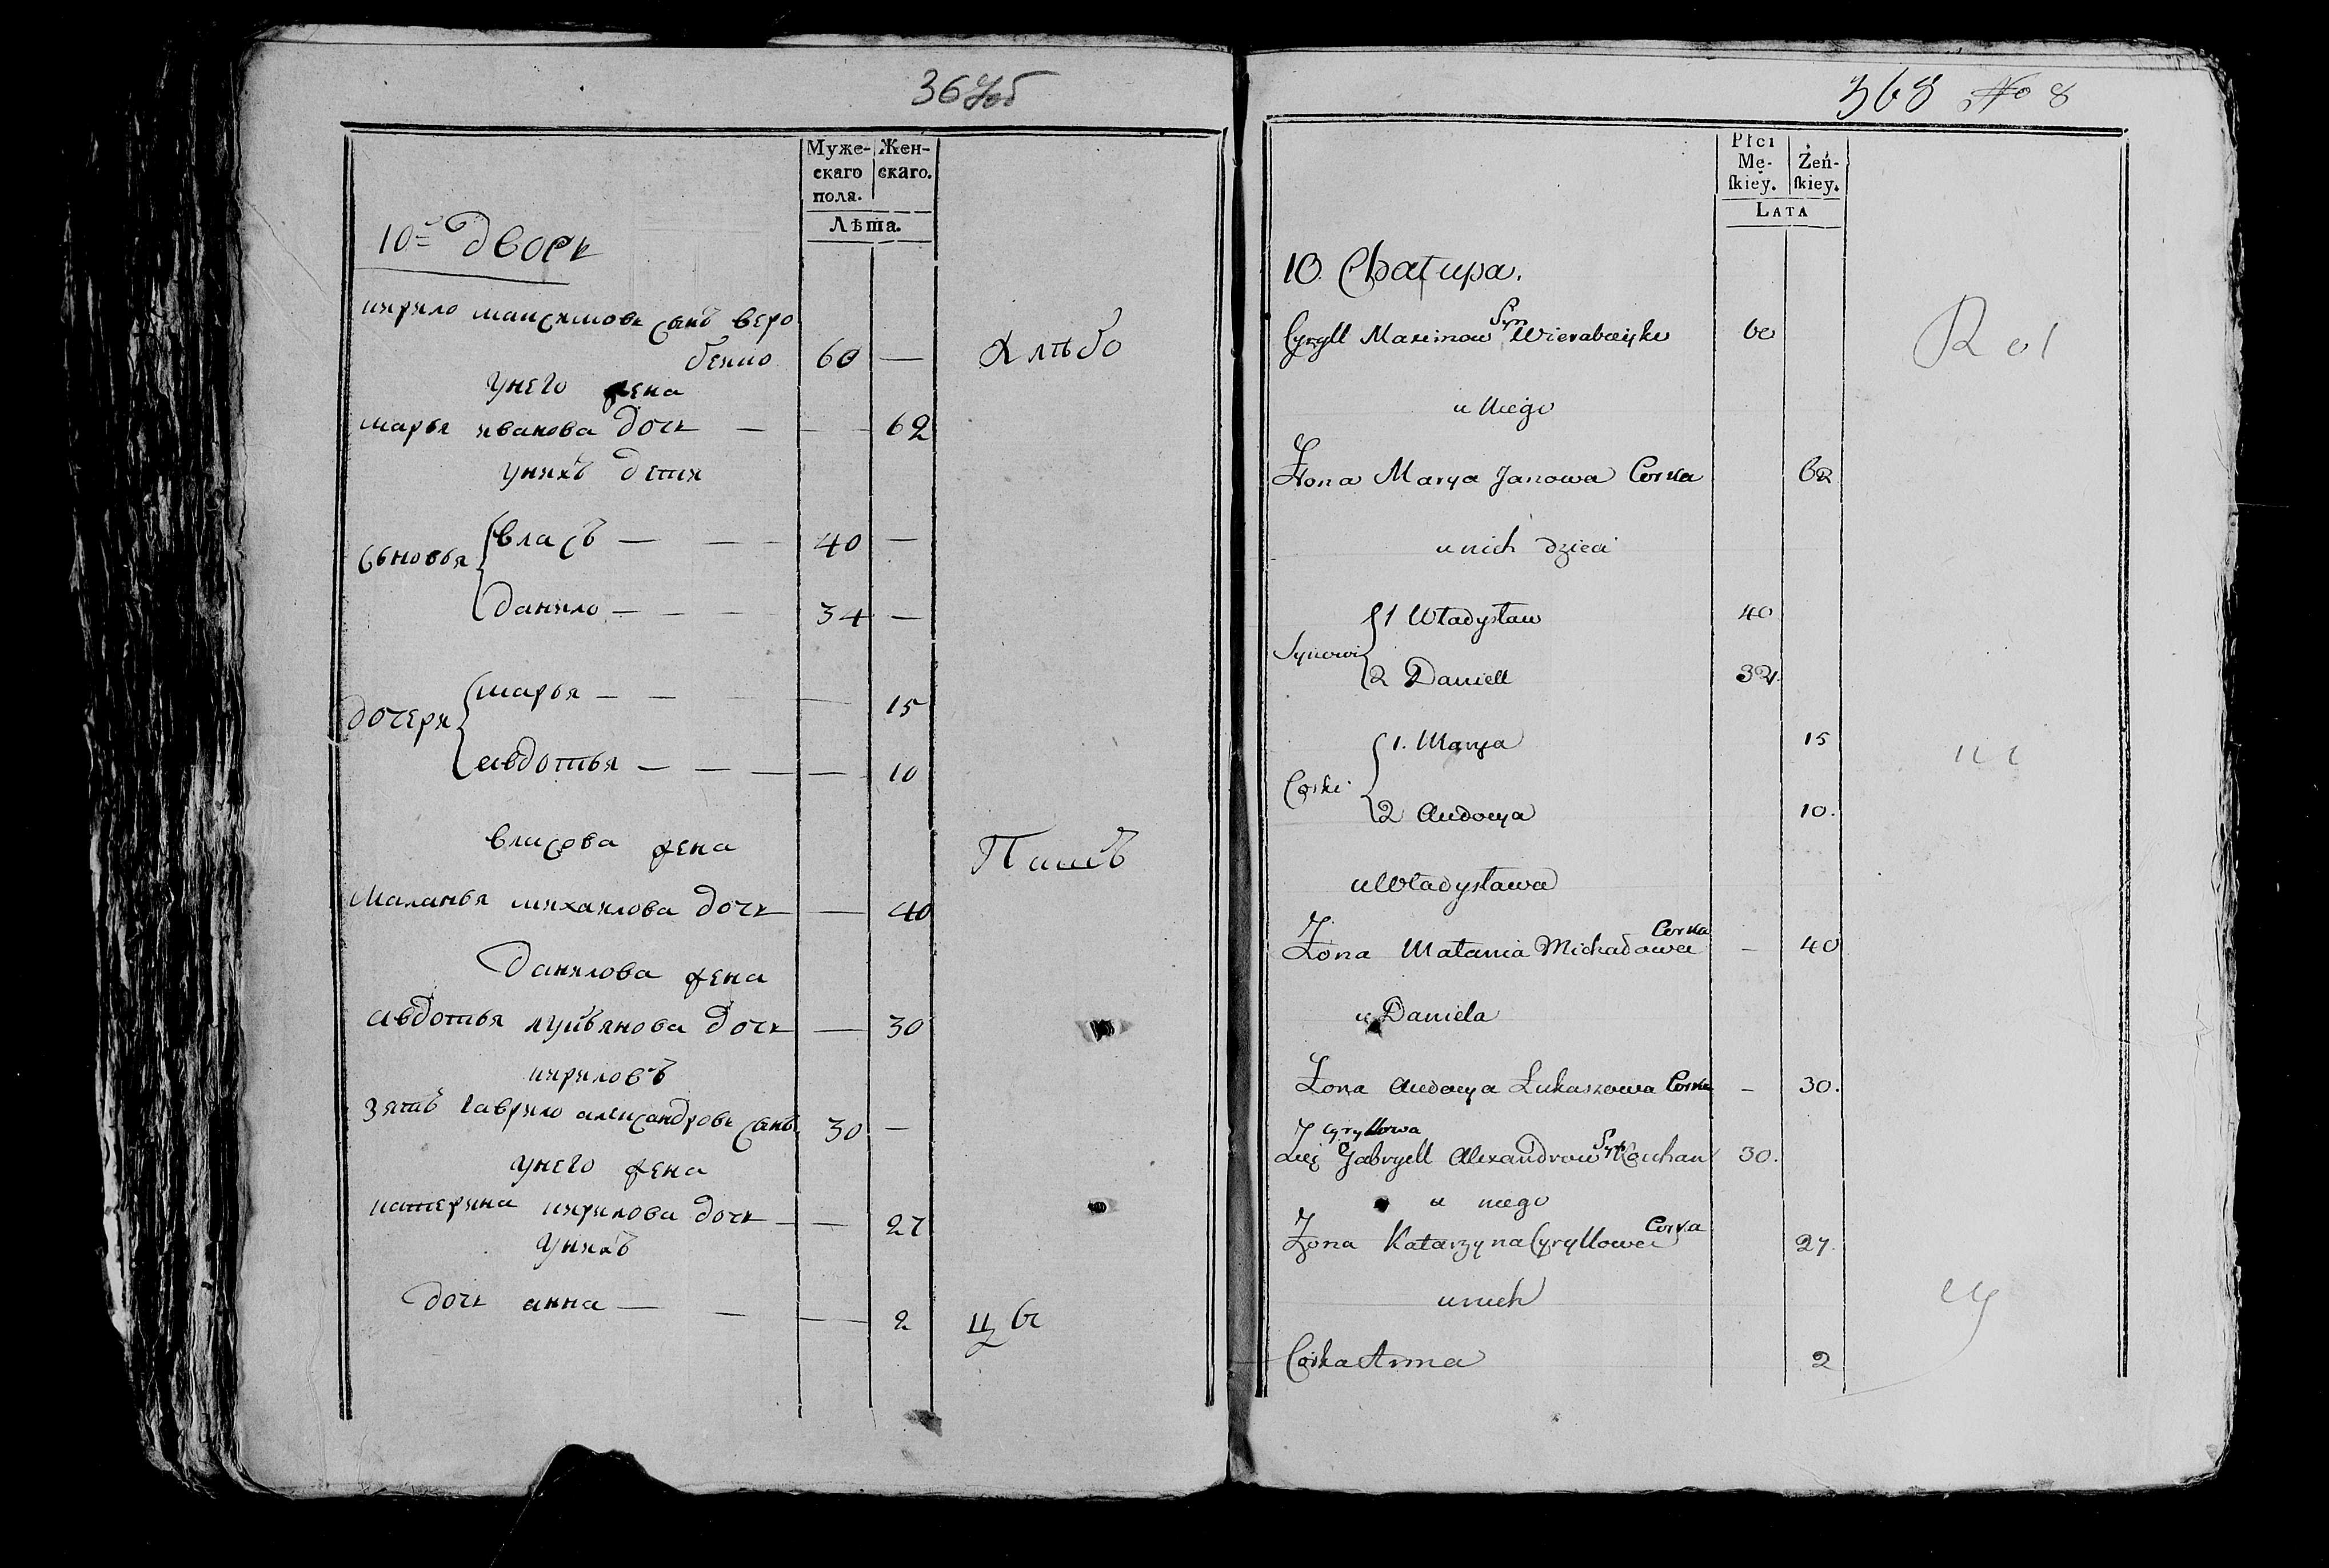 367об
Муже-
скаго
пола.
Жен-
скаго.
Лѣта.
10й дворъ
кирило максимовъ сынъ веро
бейко 60 — Хлѣбо
унего жена
марья иванова дочь — — 62
унихъ дети
сыновья
власъ — — — 40 —
данило — — — 34 —
дочери
марья — — — — 15
авдотья — — — — 10
власова жена
Пашъ
маланья михайлова дочь — 40
данилова жена
авдотья лукьянова дочь — 30
кириловъ
зять гаврило александровъ сынъ 30 —
унего жена
катерина кирилова дочь — — 27
унихъ
дочь анна — — — 2
368 No 8
Płci
Mę-
ſkiey.
Żeń-
ſkiey.
Lata
10. Chałupa.
Cyryll Maximow Syn Wierabieyko 60
Rol
u niego
Żona Marya Janowa Corka 62
u nich dzieci
Synowi
1 Władysław 40
2 Daniell
Corki
1. Marya 15
2 Audocya 10.
u Władysława
Żona Małania Michałowa Corka — 40
u Daniela
Żona Audocya Łukaszowa Corka — 30.
Cyryllowa
Zięć Gabryell Alexandrow Syn 30.
u niego
Żona Katarzyna Cyryllowa Corka 27.
u nich
Corka Anna 2